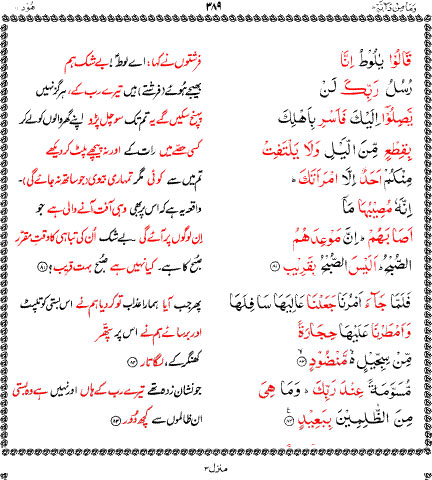 وما من دآبۃ ۱۲ ۳۸۹ ھود ۱۱
قَالُوْا يٰلُوْطُ اِنَّا
رُسُلُ رَبِّكَ لَنْ
يَّصِلُوْٓا اِلَيْكَ فَاَسْرِ بِاَهْلِكَ
بِقِطْعٍ مِّنَ الَّيْلِ وَلَا يَلْتَفِتْ
مِنْكُمْ اَحَدٌ اِلَّا امْرَاَتَكَ ؕ
اِنَّهٗ مُصِيْبُهَا مَآ
اَصَابَهُمْ ؕ اِنَّ مَوْعِدَهُمُ
الصُّبْحُ ؕ اَلَيْسَ الصُّبْحُ بِقَرِيْبٍ ﴿۸۱﴾
فَلَمَّا جَآءَ اَمْرُنَا جَعَلْنَا عَالِيَهَا سَافِلَهَا
وَاَمْطَرْنَا عَلَيْهَا حِجَارَةً
مِّنْ سِجِّيْلٍ ۙ مَّنْضُوْدٍ ﴿۸۲﴾
مُّسَوَّمَةً عِنْدَ رَبِّكَ ؕ وَمَا هِيَ
مِنَ الظّٰلِمِيْنَ بِبَعِيْدٍ ﴿۸۳﴾
فرشتوں نے کہا: اے لوطؑ! بے شک ہم
بھیجے ہوئے (فرشتے) ہیں تیرے رب کے، ہرگز نہیں
پہنچ سکیں گے یہ تم تک سو چل پڑو اپنے گھر والوں کو لے کر
کسی حصّے میں رات کے اور نہ پیچھے پلٹ کر دیکھے
تم میں سے کوئی مگر تمہاری بیوی (جو ساتھ نہ جائے گی)۔
واقعہ یہ ہے کہ اس پر بھی وہی آفت آنے والی ہے جو
اِن لوگوں پر آئے گی۔ بے شک اُن کی تباہی کا وقتِ مقرّر
صُبح کا ہے۔ کیا نہیں ہے صُبح بہت قریب؟ ﴿۸۱﴾
پھر جب آیا ہمارا عذاب تو کر دیا ہم نے اس بستی کو تلپٹ
اور برسائے ہم نے اس پر پتھّر
کھنگر کے، لگاتار ﴿۸۲﴾
جو نشان زدہ تھے تیرے رب کے ہاں اور نہیں ہے وہ بستی
ان ظالموں سے کچھ دُور ﴿۸۳﴾
منزل ۳